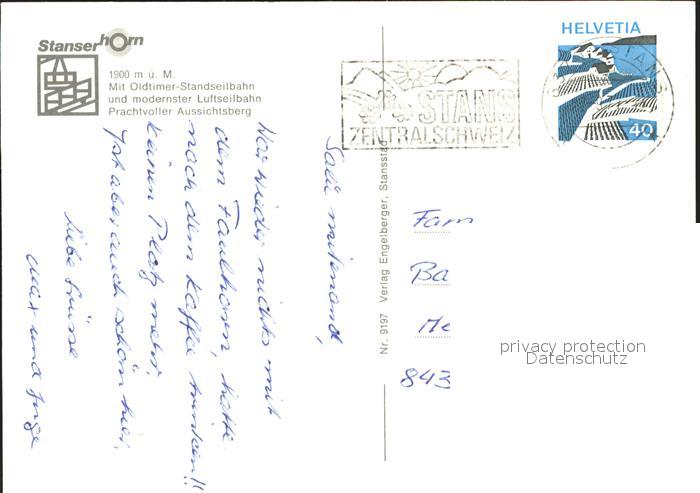 Stanserhorn
1900 m ü. M.
Mit Oldtimer-Standseilbahn
und modernster Luftseilbahn
Prachtvoller Aussichtsberg
HELVETIA
40
STANS
ZENTRALSCHWEIZ
Nr. 9197 Verlag Engelberger, Stansstad
Salü mitenand,
War wieder nichts mit
dem Faulhorn, hatte
nach dem Kaffee trinken!!
keinen Platz mehr,
Ist aber auch schön hier,
Liebe Grüsse
Max und Inge
Fam
Ba
He
843
privacy protection
Datenschutz